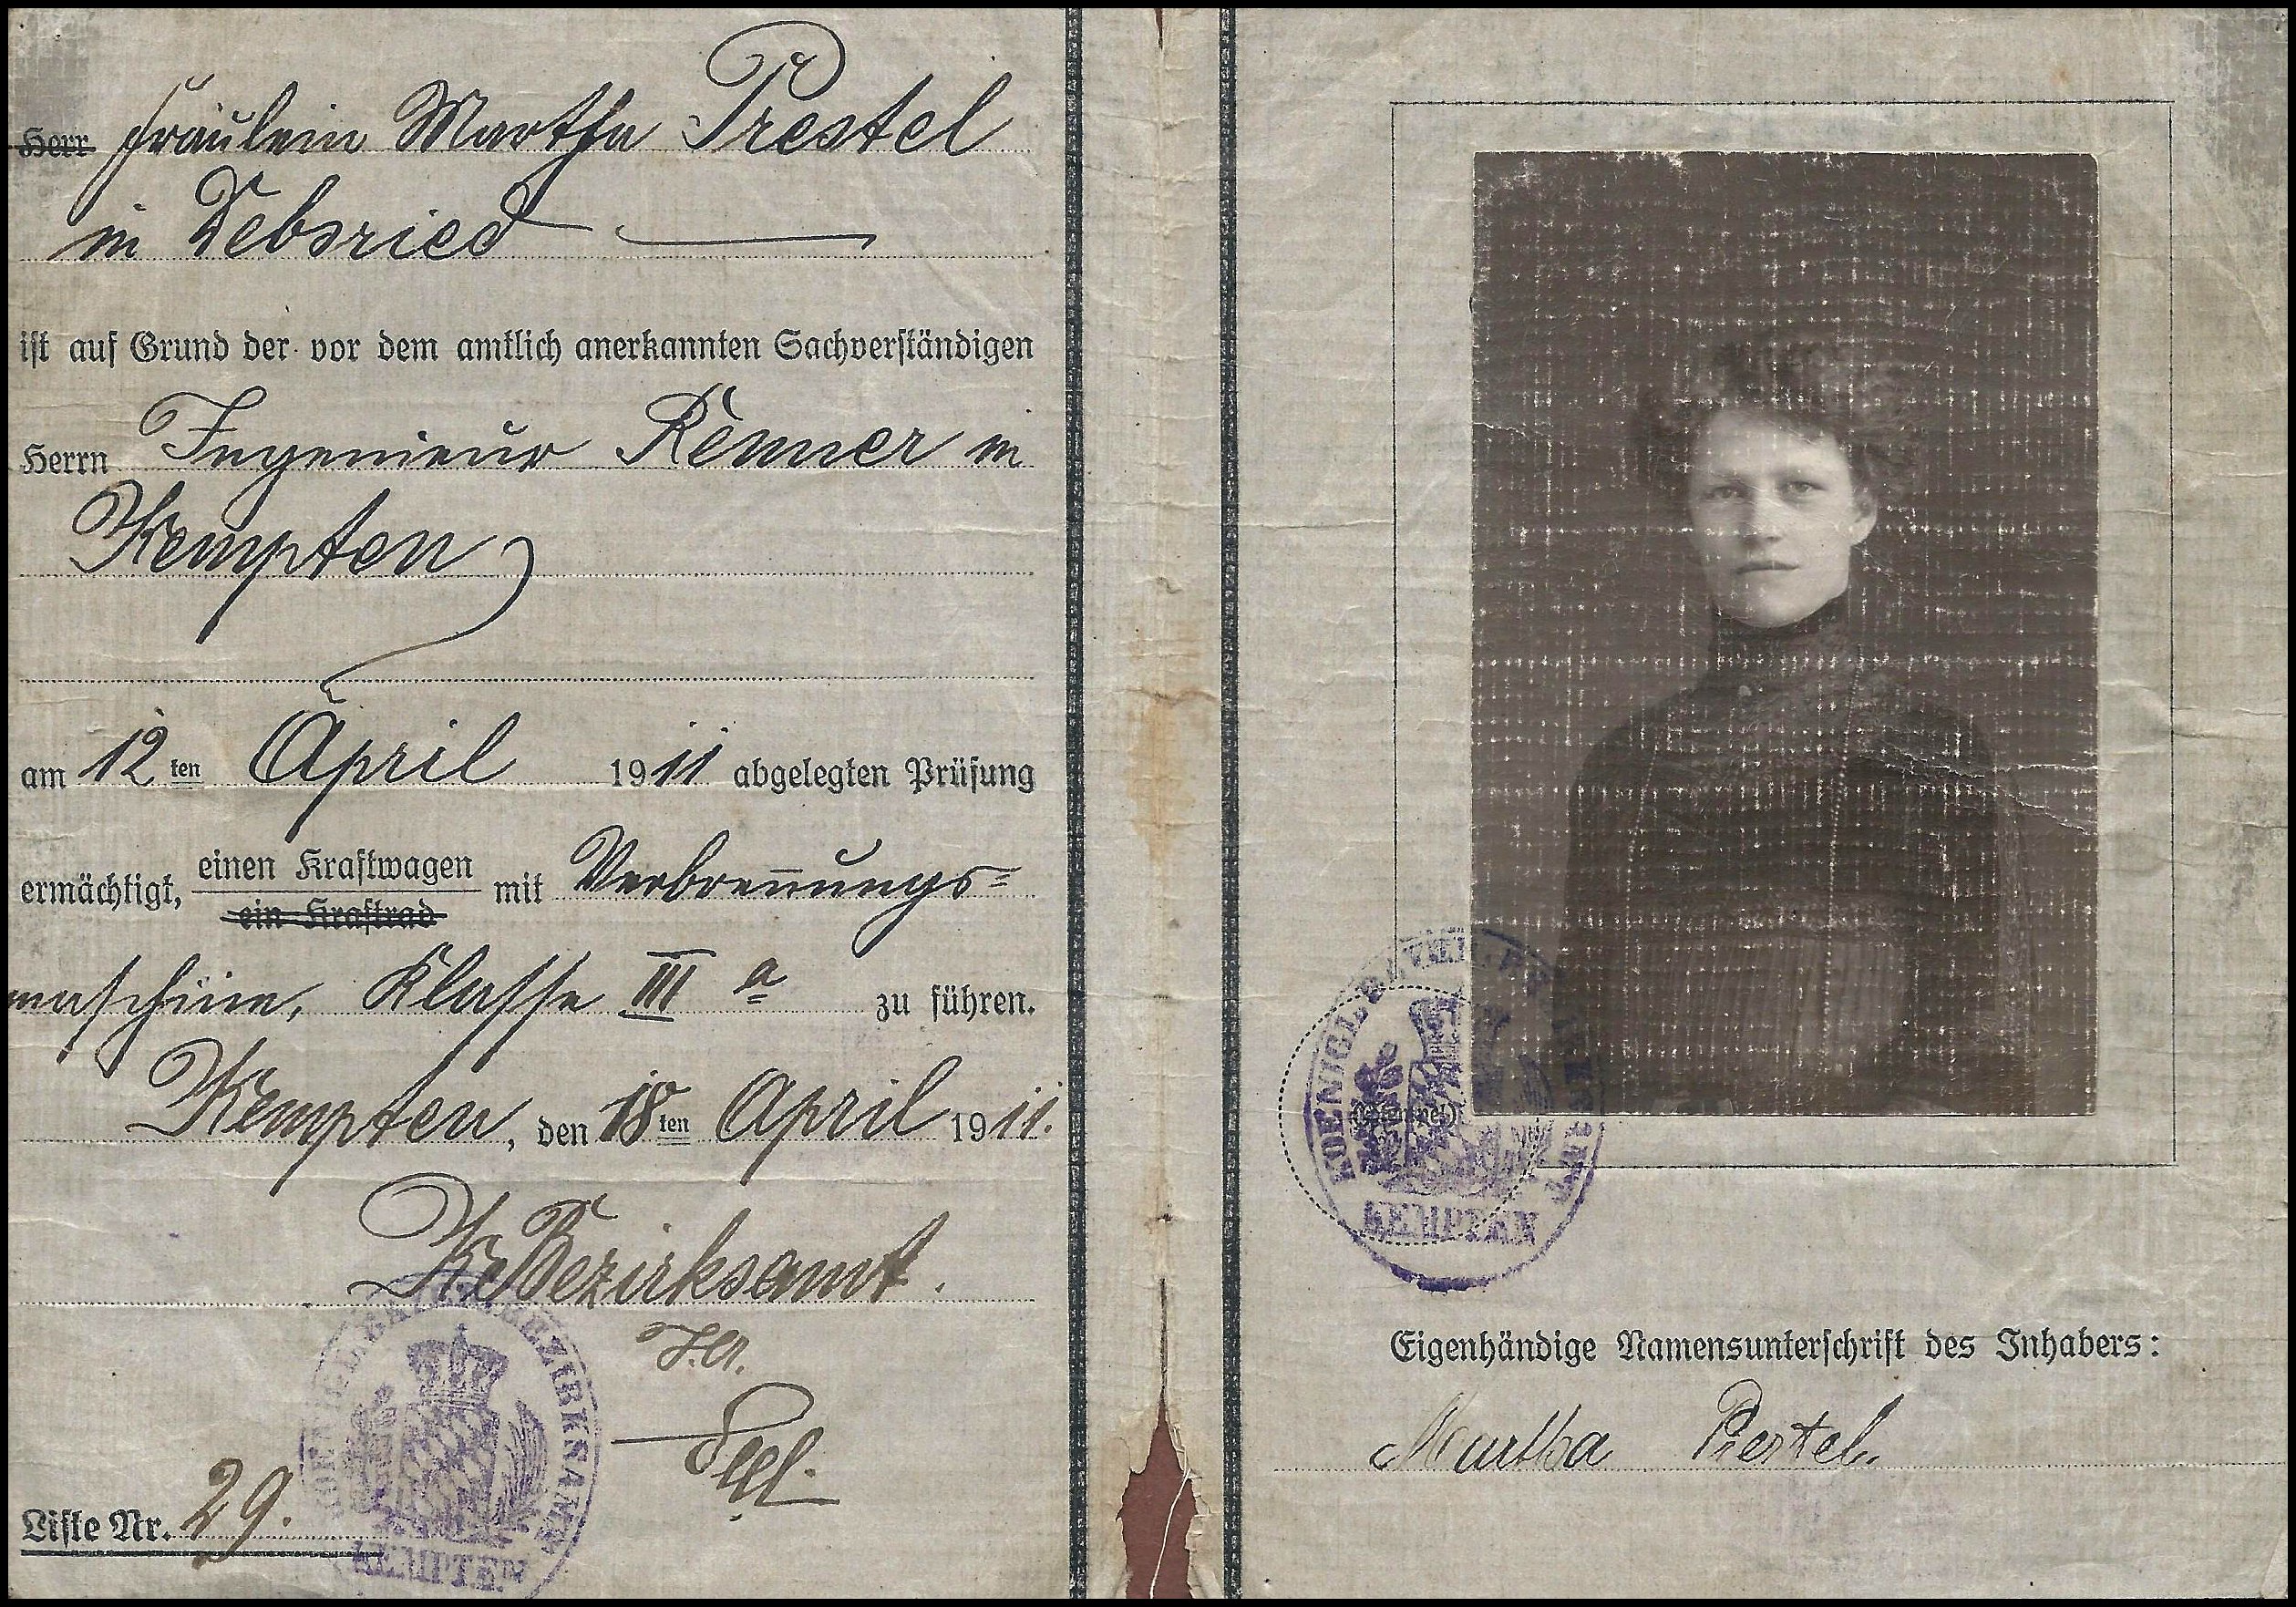 Herr Fräulein Martha Prestel
in Debsried
ist auf Grund der vor dem amtlich anerkannten Sachverständigen
Herrn Ingenieur Renner in
Kempten
am 12 ten April 1911 abgelegten Prüfung
ermächtigt, einen Kraftwagen mit Verbrennungs=
ein Kraftrad
maschine, Klasse III a zu führen.
Kempten, den 18 ten April 1911.
K. Bezirksamt.
KOENIGL. BAYER. BEZIRKSAMT
KEMPTEN
Liste Nr. 29.
KOENIGL. BAYER. BEZIRKSAMT
(Stempel)
KEMPTEN
Eigenhändige Namensunterschrift des Inhabers:
Martha Prestel.